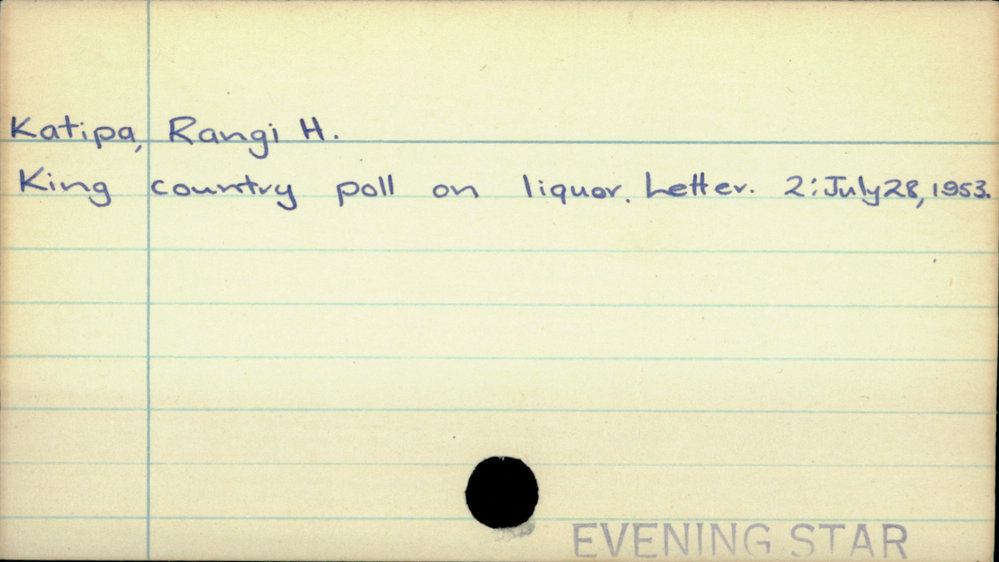 Katipa, Rangi H.
King country poll on liquor. Letter. 2: July 28, 1953.
EVENING STAR